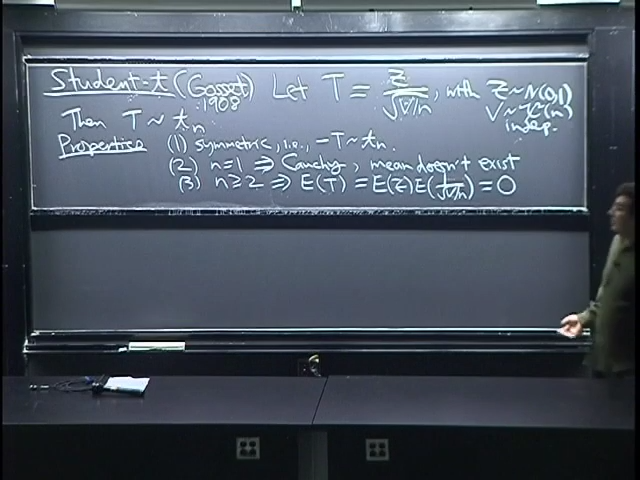 Student-t (Gosset) Let T = Z/√(V/n), with Z ~ N(0,1)
1908 V ~ χ²(n)
indep.
Then T ~ tₙ
Properties (1) symmetric, i.e., -T ~ tₙ.
(2) n=1 ⇒ Cauchy, mean doesn't exist
(3) n≥2 ⇒ E(T) = E(Z)E(1/√(V/n)) = 0